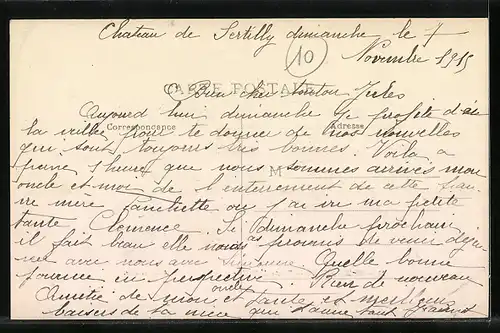 Chateau de Sertilly dimanche le 7
Novembre 1915
10
CARTE POSTALE
Bien cher tonton Jules
Aujourd hui dimanche je profite d'etre
Correspondance Adresse
la ville pour te donner de nos nouvelles
qui sont toujours très bonnes. Voila a
peine 1 heure que nous sommes arrivés mon
M
oncle et moi de l'enterrement de cette pau-
vre mère ou j'ai vu ma petite
tante Clemence. Si dimanche prochain
il fait beau elle nous as promis de venir déjeu-
ner avec nous avec Quelle bonne
journée en perspective. Rien de nouveau
Amitié de mon oncle et tante et meilleurs
baisers de ta nièce qui t'aime tant